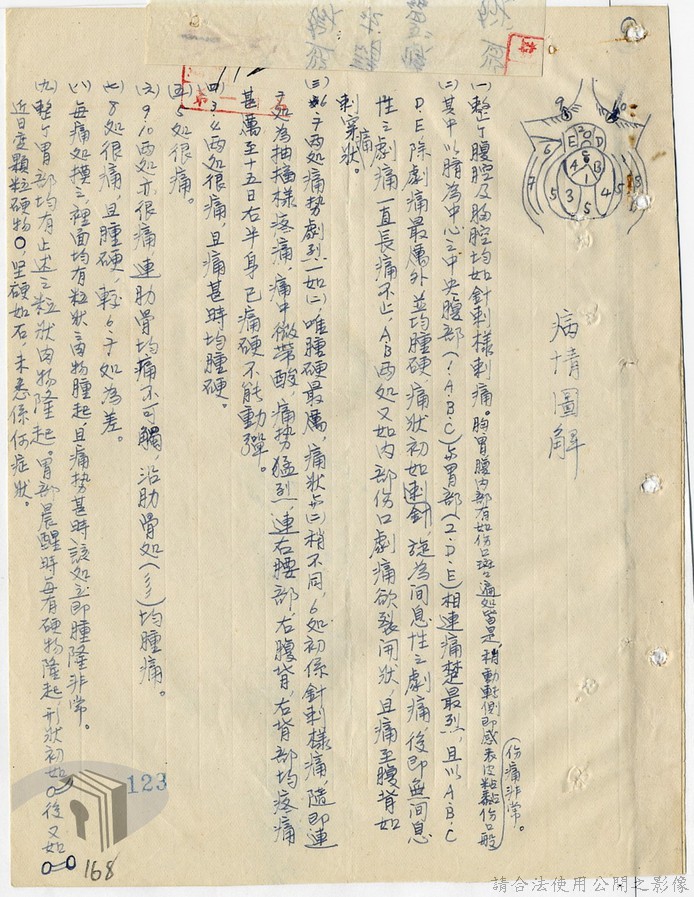 病情圖解
(一)整个腹腔及胸腔均如針刺樣刺痛。胸胃腰內部有如傷口斑斑遍处皆是,稍動輕側即感表皮粘黏傷口般
(傷痛非常。
(二)其中以臍為中心之中央腹部(1.A.B.C)与胃部(2.D.E)相連痛楚最烈,且以A.B.C
D.E除劇痛最厲外並均腫硬,痛狀初如刺針,旋為间息性之劇痛,後即無间息
性之劇痛一直長痛不止,AB两处又如內部傷口劇痛欲裂開狀,且痛至腹背如
刺穿狀。
痛
(三)6.7两处痛势劇烈一如(二),唯腫硬最厲,痛狀与(二)稍不同,6处初係針刺樣痛,隨即連
7处為抽搐樣疼痛,痛中微帶酸,痛势猛烈,連右腰部,右腹背,右背部均疼痛
甚厲至十五日右半身已痛硬不能動彈。
(四)3.4两处很痛,且痛甚時均腫硬。
(五)5处很痛。
(六)9.10两处亦很痛連肋骨均痛不可觸,沿肋骨处(ミミ)均腫痛。
(七)8处很痛,且腫硬,較6.7处為差。
(八)每痛处摸之,裡面均有粒狀肉物腫起,且痛势甚時該处立即腫隆非常。
(九)整个胃部均有上述之粒狀肉物隆起。胃部晨醒時每有硬物隆起,形狀初如0後又如0=0
近日定顆粒硬物0坚硬如石,未悉係何症狀。
9
10
E
2
D
6
4
B
7
5
3
4
5
8
5
第一
123
168
請合法使用公開之影像